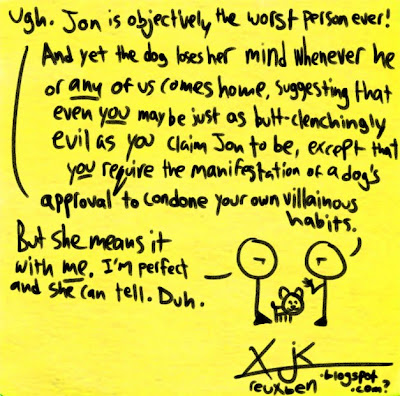 Ugh. Jon is objectively the worst person ever!
And yet the dog loses her mind whenever he
or any of us comes home, suggesting that
even you may be just as butt-clenchingly
evil as you claim Jon to be, except that
you require the manifestation of a dog's
approval to condone your own villainous
habits.
But she means it
with me. I'm perfect
and she can tell. Duh.
X jk
reuxben.blogspot
.com?